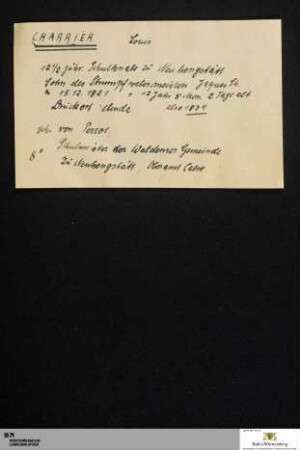 CHARRIER Louis
12 1/2 jähr. Schulknabe zu Neuhengstätt
Sohn des Strumpfwebermeisters Jaques Ch.
* 15.12.1821 + 12 Jahr 8 Mon. 2 Tage alt
Druckort: also 1834
von Perrot.
8° Schulmeister der Waldenser Gemeinde
zu Neuhengstätt, Oberamt Calw
Baden-Württemberg